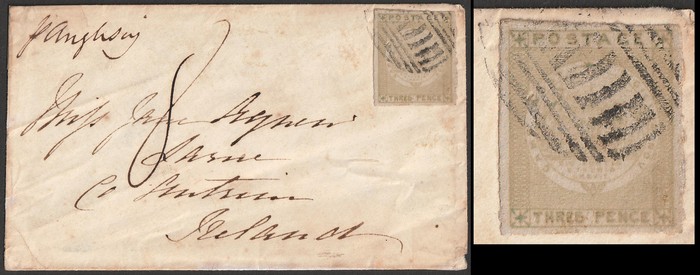 p Anglesey
POSTAGE
THREE PENCE
Miss Jane Agnew
Larne
Co Antrim
Ireland
POSTAGE
THREE PENCE